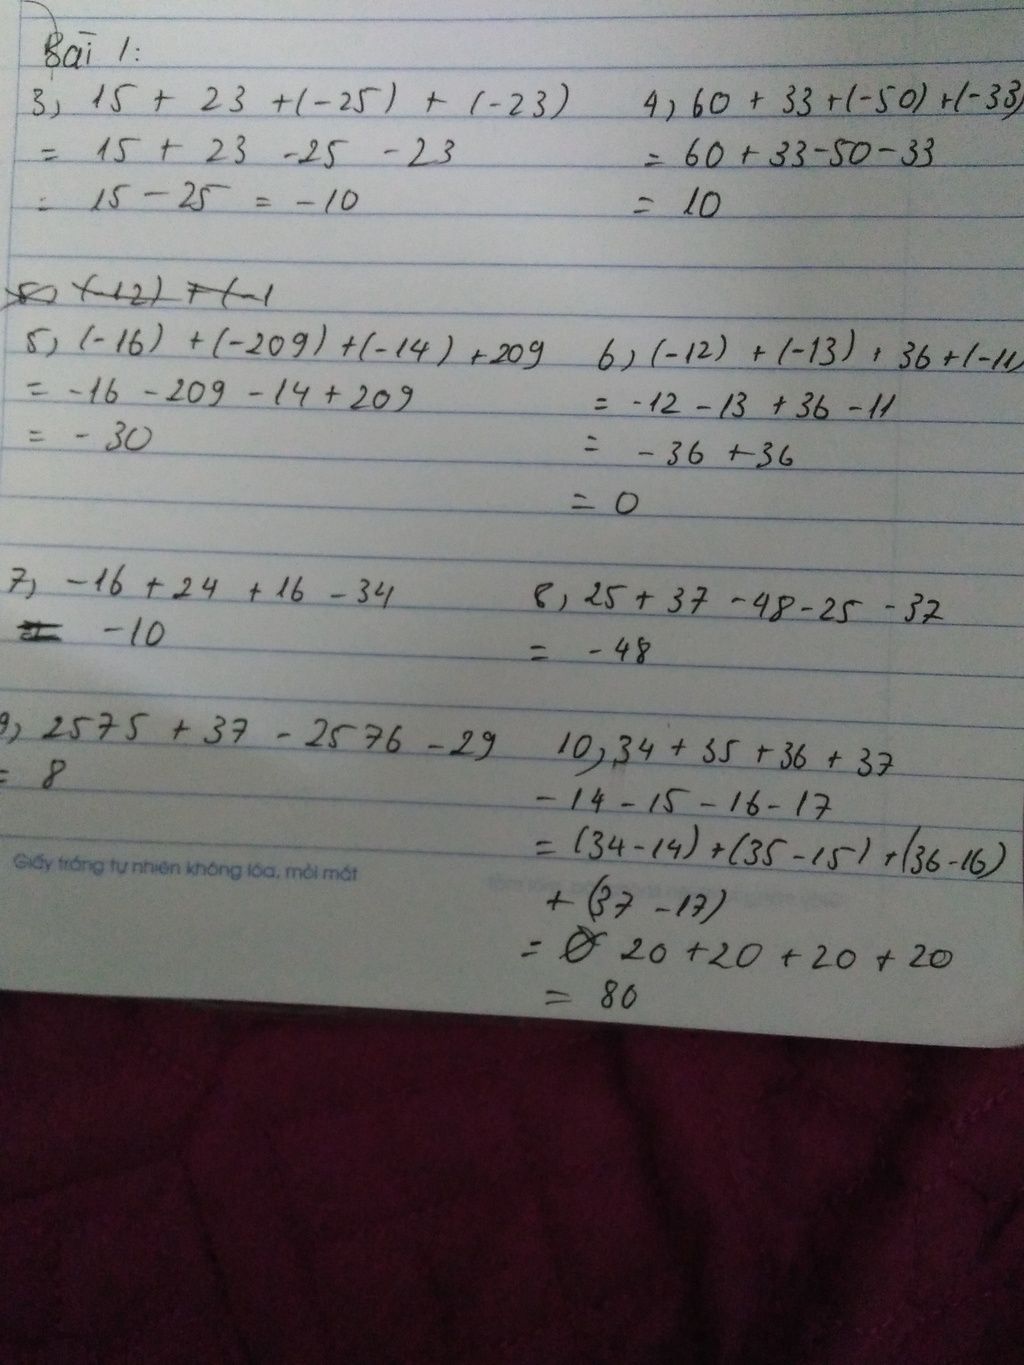 Bài 1:
3, 15 + 23 + (-25) + (-23)
= 15 + 23 - 25 - 23
= 15 - 25 = -10
4, 60 + 33 + (-50) + (-33)
= 60 + 33 - 50 - 33
= 10
5, (-12) + (-1
5, (-16) + (-209) + (-14) + 209
= -16 - 209 - 14 + 209
= - 30
6, (-12) + (-13) + 36 + (-11)
= -12 - 13 + 36 - 11
= - 36 + 36
= 0
7, -16 + 24 + 16 - 34
= -10
8, 25 + 37 - 48 - 25 - 37
= - 48
9, 2575 + 37 - 2576 - 29
= 8
10, 34 + 35 + 36 + 37
- 14 - 15 - 16 - 17
= (34 - 14) + (35 - 15) + (36 - 16)
+ (37 - 17)
= 20 + 20 + 20 + 20
= 80
Giấy trắng tự nhiên không lóa, mỏi mắt